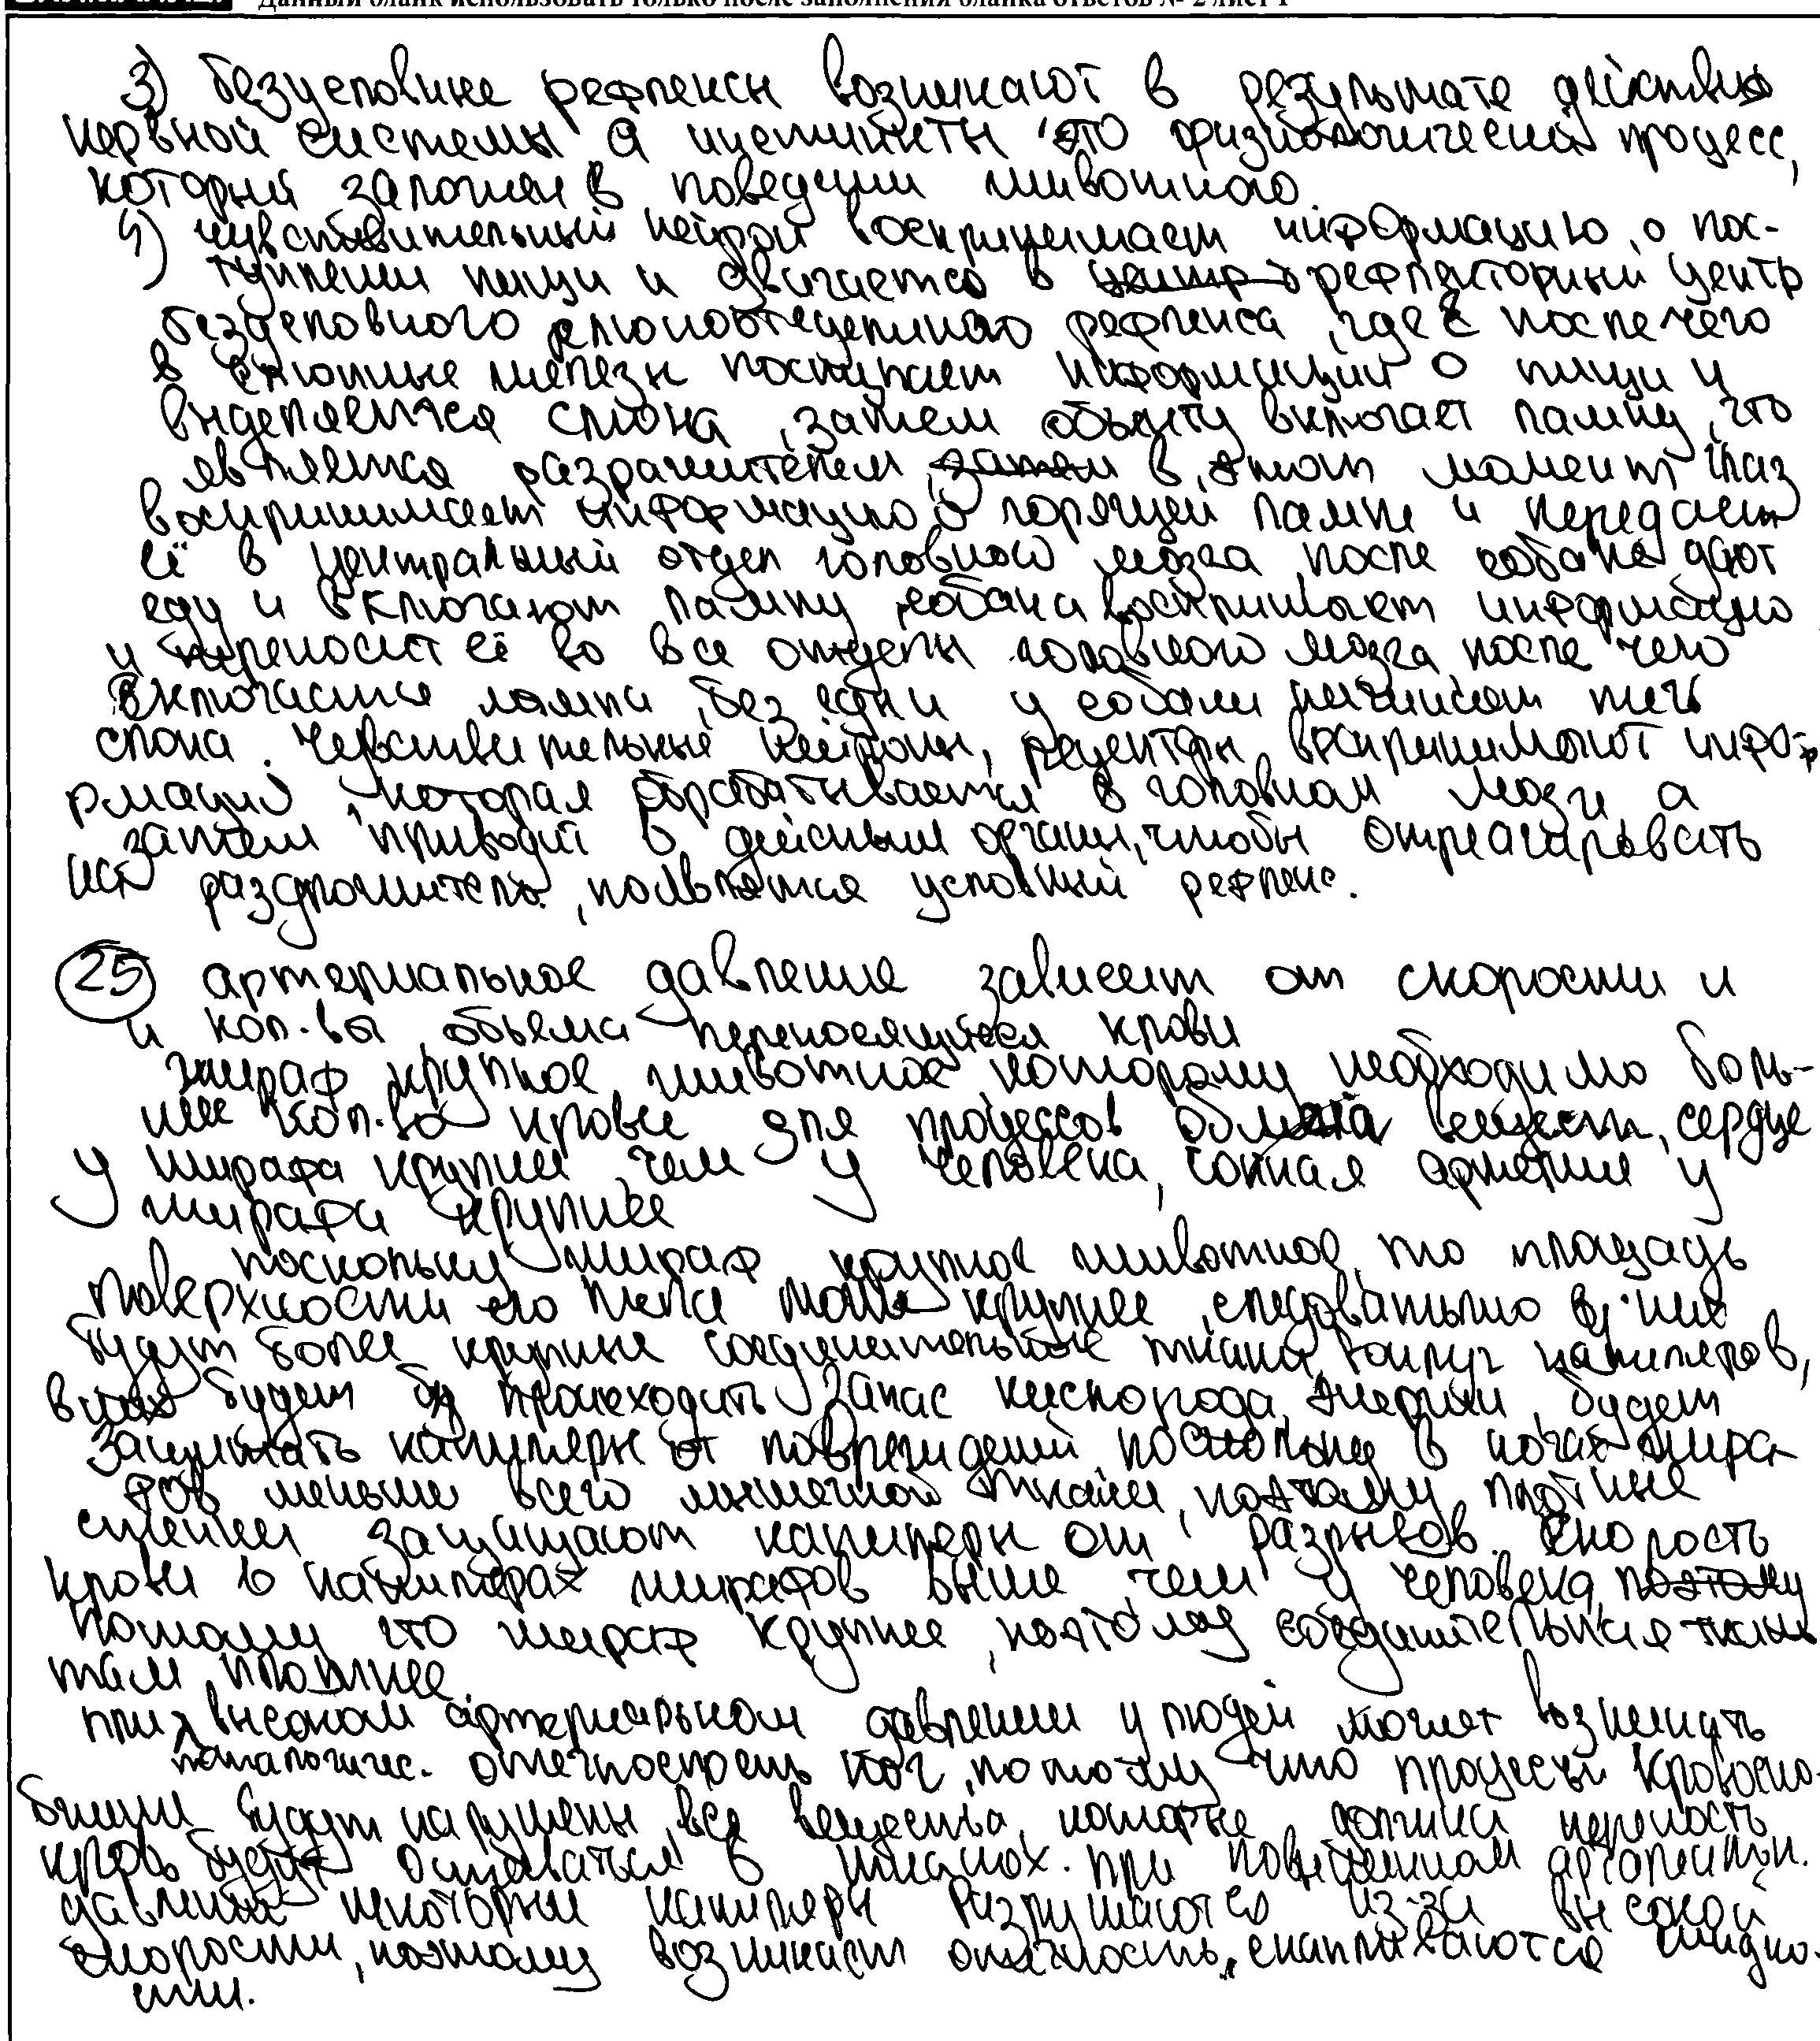 Данный бланк использовать только после заполнения бланка ответов № 2 лист 1
3) безусловные рефлексы возникают в результате действия
нервной системы, а инстинкты это физиологический процесс,
который заложен в поведении животного.
4) чувствительный нейрон воспринимает информацию о пос-
туплении пищи и двигается в рефлекторный центр
безусловного слюноотделительного рефлекса, где после чего
в слюнные железы поступает информация о пищи и
выделяется слюна, затем объекту включает лампу, что
является раздражителем, затем в этот момент глаз
воспринимает информацию о горящей лампе и передает
её в центральный отдел головного мозга, после собаке дают
еду и включают лампу, собака воспринимает информацию
и переносит её во все отделы головного мозга после чего
включается лампа, без еды и у собаки начинает течь
слюна. Чувствительные нейроны, рецепторы воспринимают инфо-
рмацию, которая обрабатывается в головном мозге а
затем приводит в действие органы, чтобы отреагировать
на раздражитель, появляется условный рефлекс.
25 артериальное давление зависит от скорости и
и кол-ва объёма переносящейся крови
жираф крупное животное которому необходимо боль-
шее кол-во крови для процессов обмена веществ, сердце
у жирафа крупнее чем у человека, сонная артерия у
жирафа крупнее
поскольку жираф крупное животное, то площадь
поверхности его тела тоже крупнее, следовательно в них
будут более крупные соединительные ткани вокруг капиляров,
в них будет происходить запас кислорода, энергии, будет
защищать капиляры от повреждений, поскольку в ногах жира-
фов меньше всего мышечной ткани, поэтому плотные
стенки защищают капиляры от разрывов. Скорость
крови в капилярах жирафов выше чем у человека, поэтому
потому что жираф крупнее, поэтому соединительная ткань
там плотнее.
при высоком артериальном давлении у людей может возникать
патологичес. отечность ног, потому что процессы кровосна-
бжения будут нарушены, все вещества, которые должна переность
кровь будут оставаться в тканях. при повышенном артериальн.
давлении некоторые капиляры разрушаются из-за высокой
скорости, поэтому возникает отечность, скапливаются жидко-
сти.